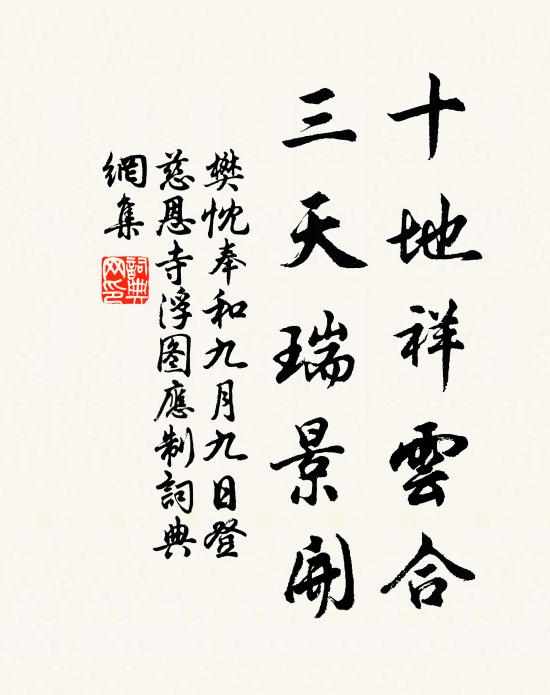 十地祥雲合
三天瑞景開
樊忱奉和九月九日登
慈恩寺浮图應制詞典
網集
詞典網印